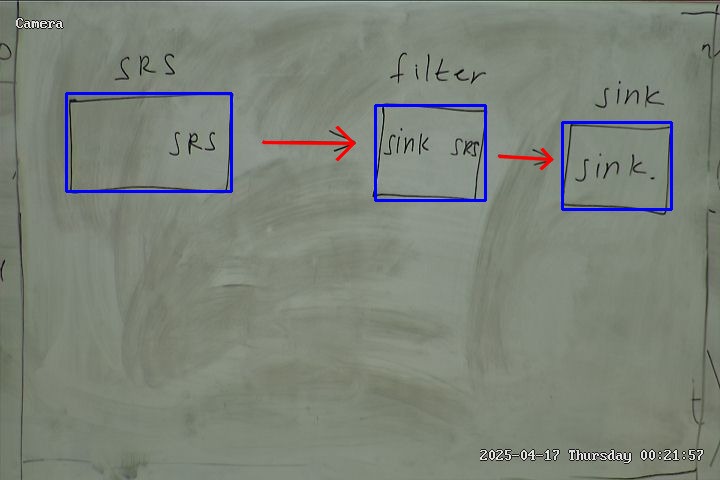 Camera
SRS
filter
sink
SRS
sink SRS
sink.
2025-04-17 Thursday 00:21:57